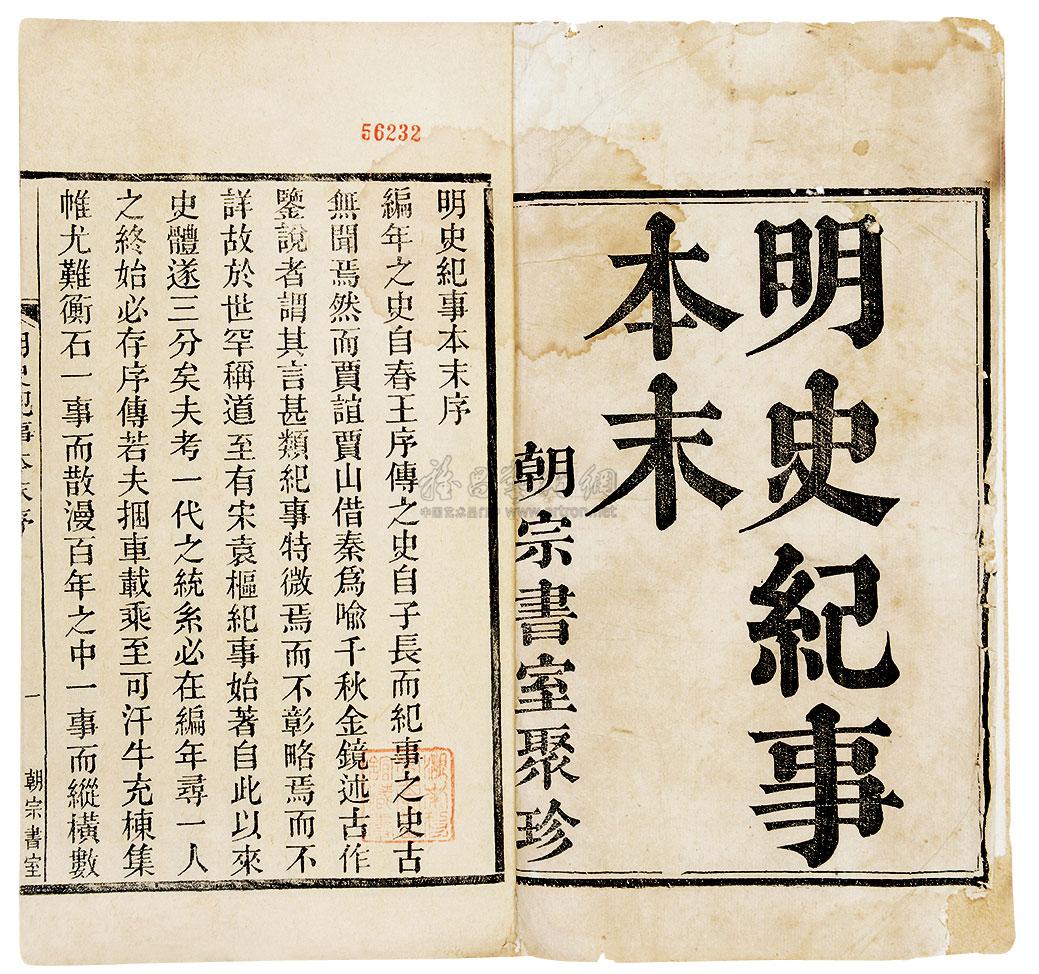 明史紀事
本末
朝宗書室聚珍
56232
明史紀事本末序
編年之史自春王序傳之史自子長而紀事之史古
無聞焉然而賈誼賈山借秦爲喻千秋金鏡述古作
鑒說者謂其言甚類紀事特微焉而不彰略焉而不
詳故於世罕稱道至有宋袁樞紀事始著自此以來
史體遂三分矣夫考一代之統系必在編年尋一人
之終始必存序傳若夫捆車載乘至可汗牛充棟集
帷尤難衡石一事而散漫百年之中一事而縱橫數
明史紀事本末序
一
朝宗書室
中国艺术品门户 www.artron.net